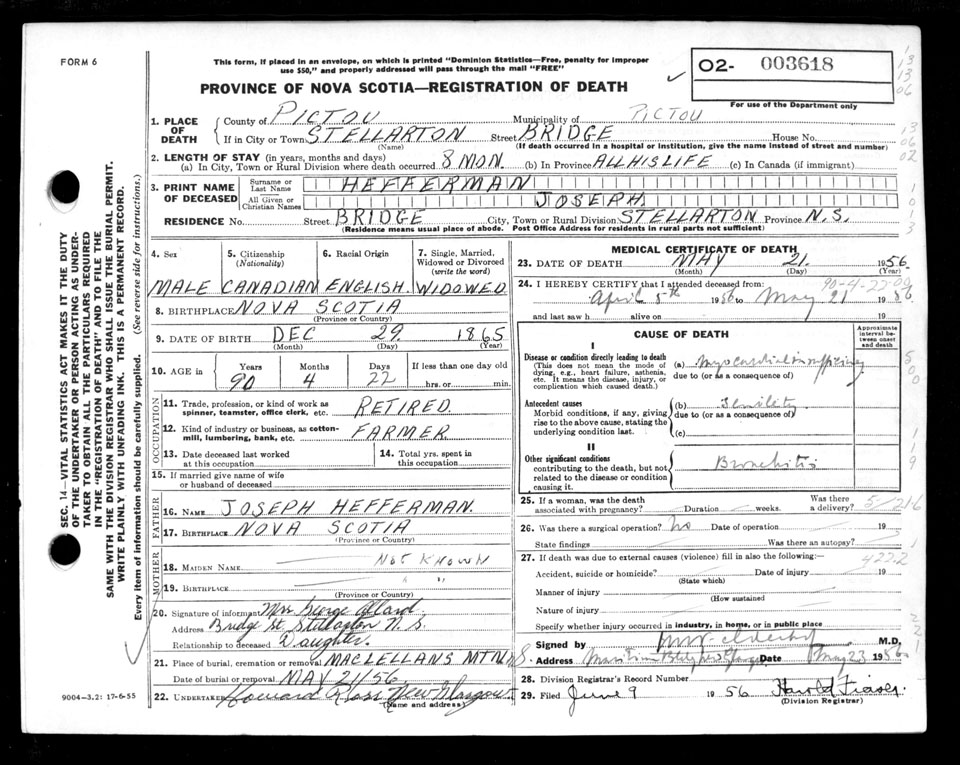 FORM 6
This form, if placed in an envelope, on which is printed "Dominion Statistics—Free, penalty for improper
use $50," and properly addressed will pass through the mail "FREE"
PROVINCE OF NOVA SCOTIA—REGISTRATION OF DEATH
02- 003618
For use of the Department only
SEC. 14—VITAL STATISTICS ACT MAKES IT THE DUTY
OF THE UNDERTAKER OR PERSON ACTING AS UNDER-
TAKER TO OBTAIN ALL THE PARTICULARS REQUIRED
IN THE "REGISTRATION OF DEATH" AND TO FILE THE
SAME WITH THE DIVISION REGISTRAR WHO SHALL ISSUE THE BURIAL PERMIT.
WRITE PLAINLY WITH UNFADING INK. THIS IS A PERMANENT RECORD.
Every item of information should be carefully supplied. (See reverse side for instructions.)
1. PLACE OF DEATH
County of PICTOU Municipality of PICTOU
If in City or Town STELLARTON Street BRIDGE House No.
(Name) (If death occurred in a hospital or institution, give the name instead of street and number)
2. LENGTH OF STAY (in years, months and days)
(a) In City, Town or Rural Division where death occurred 8 MON. (b) In Province ALL HIS LIFE (c) In Canada (if immigrant)
3. PRINT NAME OF DECEASED
Surname or Last Name HEFFERMAN
All Given or Christian Names JOSEPH
RESIDENCE No. Street BRIDGE City, Town or Rural Division STELLARTON Province N.S.
(Residence means usual place of abode. Post Office Address for residents in rural parts not sufficient)
4. Sex 5. Citizenship (Nationality) 6. Racial Origin 7. Single, Married, Widowed or Divorced (write the word)
MALE CANADIAN ENGLISH. WIDOWED
8. BIRTHPLACE NOVA SCOTIA
(Province or Country)
9. DATE OF BIRTH DEC 29. 1865
(Month) (Day) (Year)
10. AGE in Years Months Days If less than one day old
90 4 22 hrs. or min.
OCCUPATION
11. Trade, profession, or kind of work as spinner, teamster, office clerk, etc. RETIRED.
12. Kind of industry or business, as cotton-mill, lumbering, bank, etc. FARMER
13. Date deceased last worked at this occupation
14. Total yrs. spent in this occupation
15. If married give name of wife or husband of deceased
FATHER
16. NAME JOSEPH HEFFERMAN.
17. BIRTHPLACE NOVA SCOTIA
(Province or Country)
MOTHER
18. MAIDEN NAME NOT KNOWN
19. BIRTHPLACE " "
(Province or Country)
20. Signature of informant Mrs George
Address Bridge St. Stellarton N.S.
Relationship to deceased Daughter.
21. Place of burial, cremation or removal MACLELLANS MTN N.S.
Date of burial or removal MAY 21/56
22. UNDERTAKER Howard Ross New Glasgow
(Name and address)
9004—3.2: 17-6-55
MEDICAL CERTIFICATE OF DEATH
23. DATE OF DEATH MAY 21. 1956
(Month) (Day) (Year)
90-4-22-00
24. I HEREBY CERTIFY that I attended deceased from:
April 5th 1956 to May 21 1956
and last saw h alive on 19
CAUSE OF DEATH
Approximate interval between onset and death
I
Disease or condition directly leading to death
(This does not mean the mode of dying, e.g., heart failure, asthenia, etc. It means the disease, injury, or complication which caused death.)
(a) Myocardial insufficiency
due to (or as a consequence of)
Antecedent causes
Morbid conditions, if any, giving rise to the above cause, stating the underlying condition last.
(b) Senility
due to (or as a consequence of)
(c)
II
Other significant conditions
contributing to the death, but not related to the disease or condition causing it.
Bronchitis
25. If a woman, was the death associated with pregnancy? Duration weeks. Was there a delivery?
26. Was there a surgical operation? No Date of operation 19
State findings Was there an autopsy?
27. If death was due to external causes (violence) fill in also the following:—
422.2
Accident, suicide or homicide? Date of injury 19
(State which)
Manner of injury
(How sustained)
Nature of injury
Specify whether injury occurred in industry, in home, or in public place
Signed by M.D.
Address Date May 23 1956
28. Division Registrar's Record Number
29. Filed June 9 1956 Harold Fraser.
(Division Registrar)